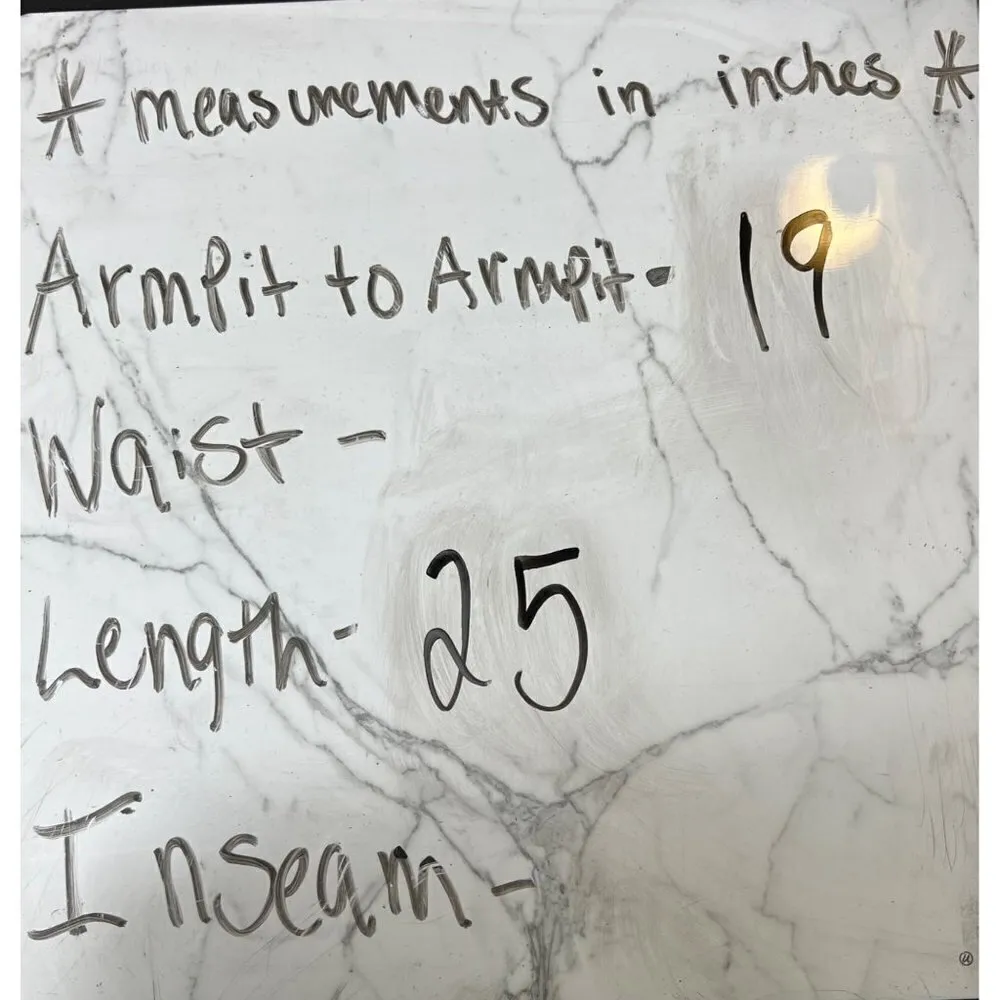 * measurements in inches *
Armpit to Armpit - 19
Waist -
Length - 25
Inseam -